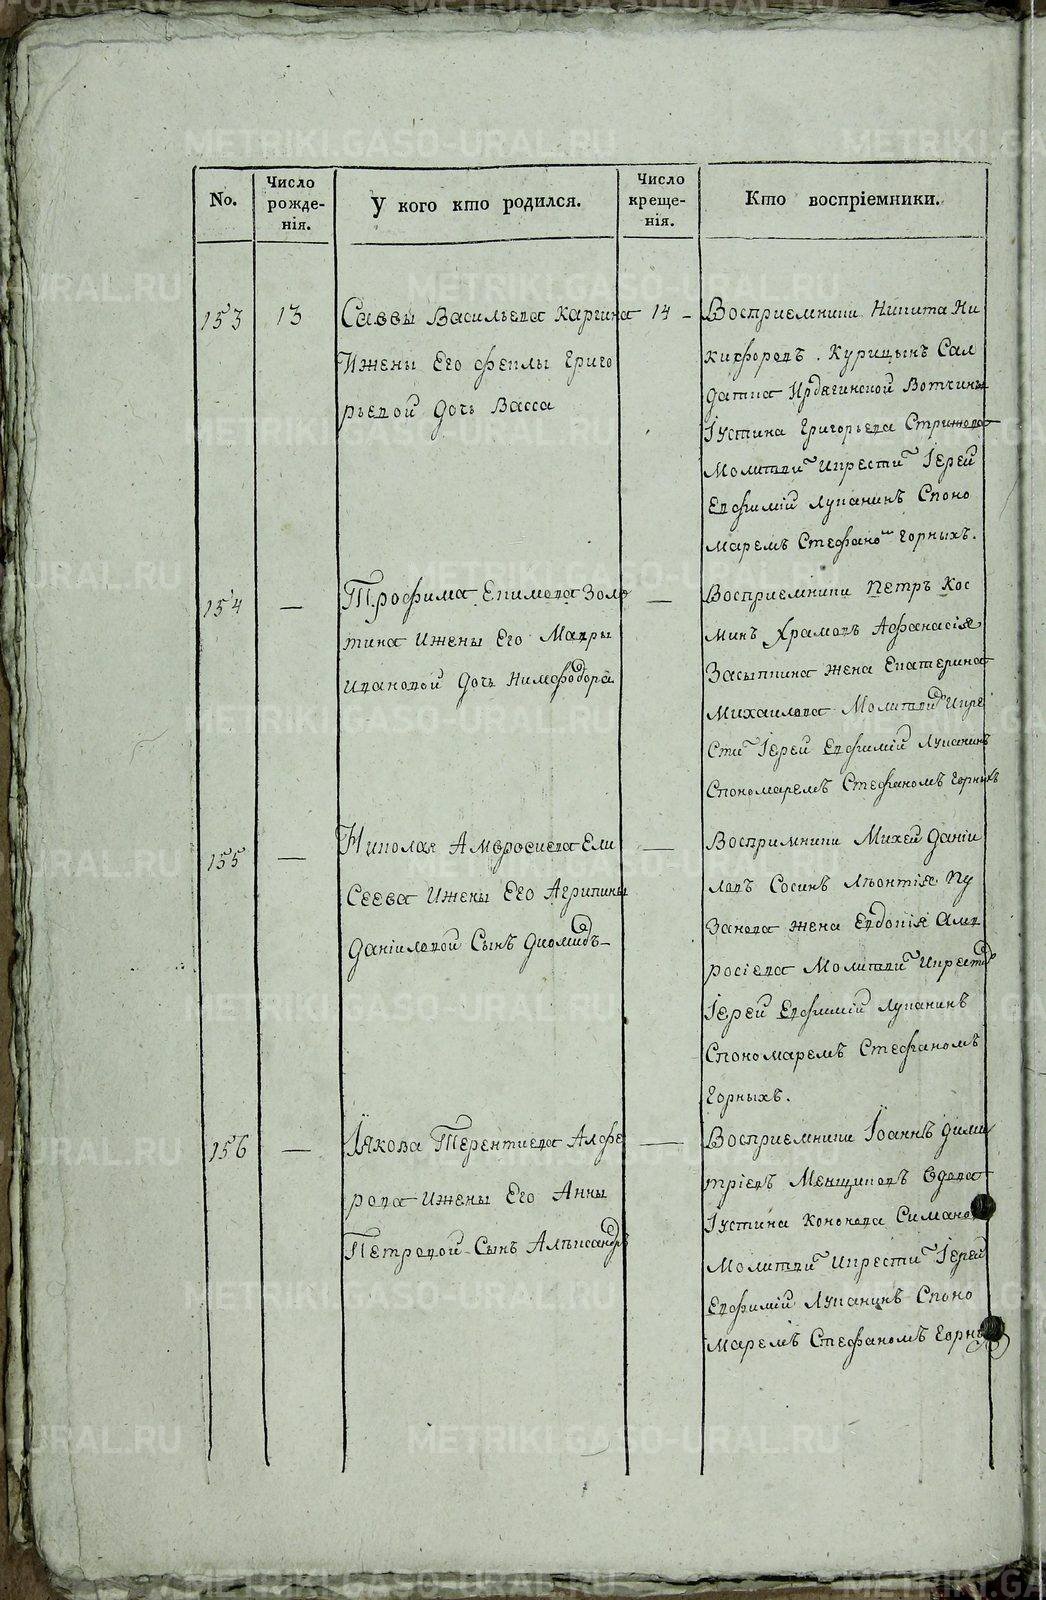 No.
Число рожде- нія.
У кого кто родился.
Число креще- нія.
Кто воспріемники.
153
13
Саввы Васильева Каргина
Ижены Его Феклы Григо
рьевой Дочь Васса
14 -
Восприемники Никита Ни
кифоровъ . Курицынъ Сал
датка Вотчины
Іустина Григорьева
Молитви Икрести Іерей
Евфимій Лупанинъ Споно
маремъ Стефано Горныхъ.
154
—
Трофима Екимова Золо
тина Ижены Его Мавры
Ивановой Дочь Нимфодора
—
Восприемники Петръ Кос
минъ Храмовъ Афанасія
Засыпкина жена Екатерина
Михаилова Молитви Икре
Сти Іерей Евфимій Лупанинъ
Спономаремъ Стефаномъ Горныхъ
155
—
Николая Амвросиева Ели
Сеева Ижены Его Агрипины
Даніиловой Сынъ Диомидъ-
—
Воспримники Михей Даніи
ловъ Сосинъ Леонтія Пу
Занова жена Евдокія Амв
росіева Молитви Икрести
Іерей Евфимій Лупанинъ
Спономаремъ Стефаномъ
Горныхъ.
156
—
Іякова Терентиева Алфе
рова Ижены Его Анны
Петровой - Сынъ Александръ
—
Восприемники Іоаннъ Дими
тріевъ Менщиковъ Вдова
Іустина Кононова
Молитви Икрести Іерей
Евфимій Лупанинъ Споно
маремъ Стефаномъ
METRIKI.GASO-URAL.RU